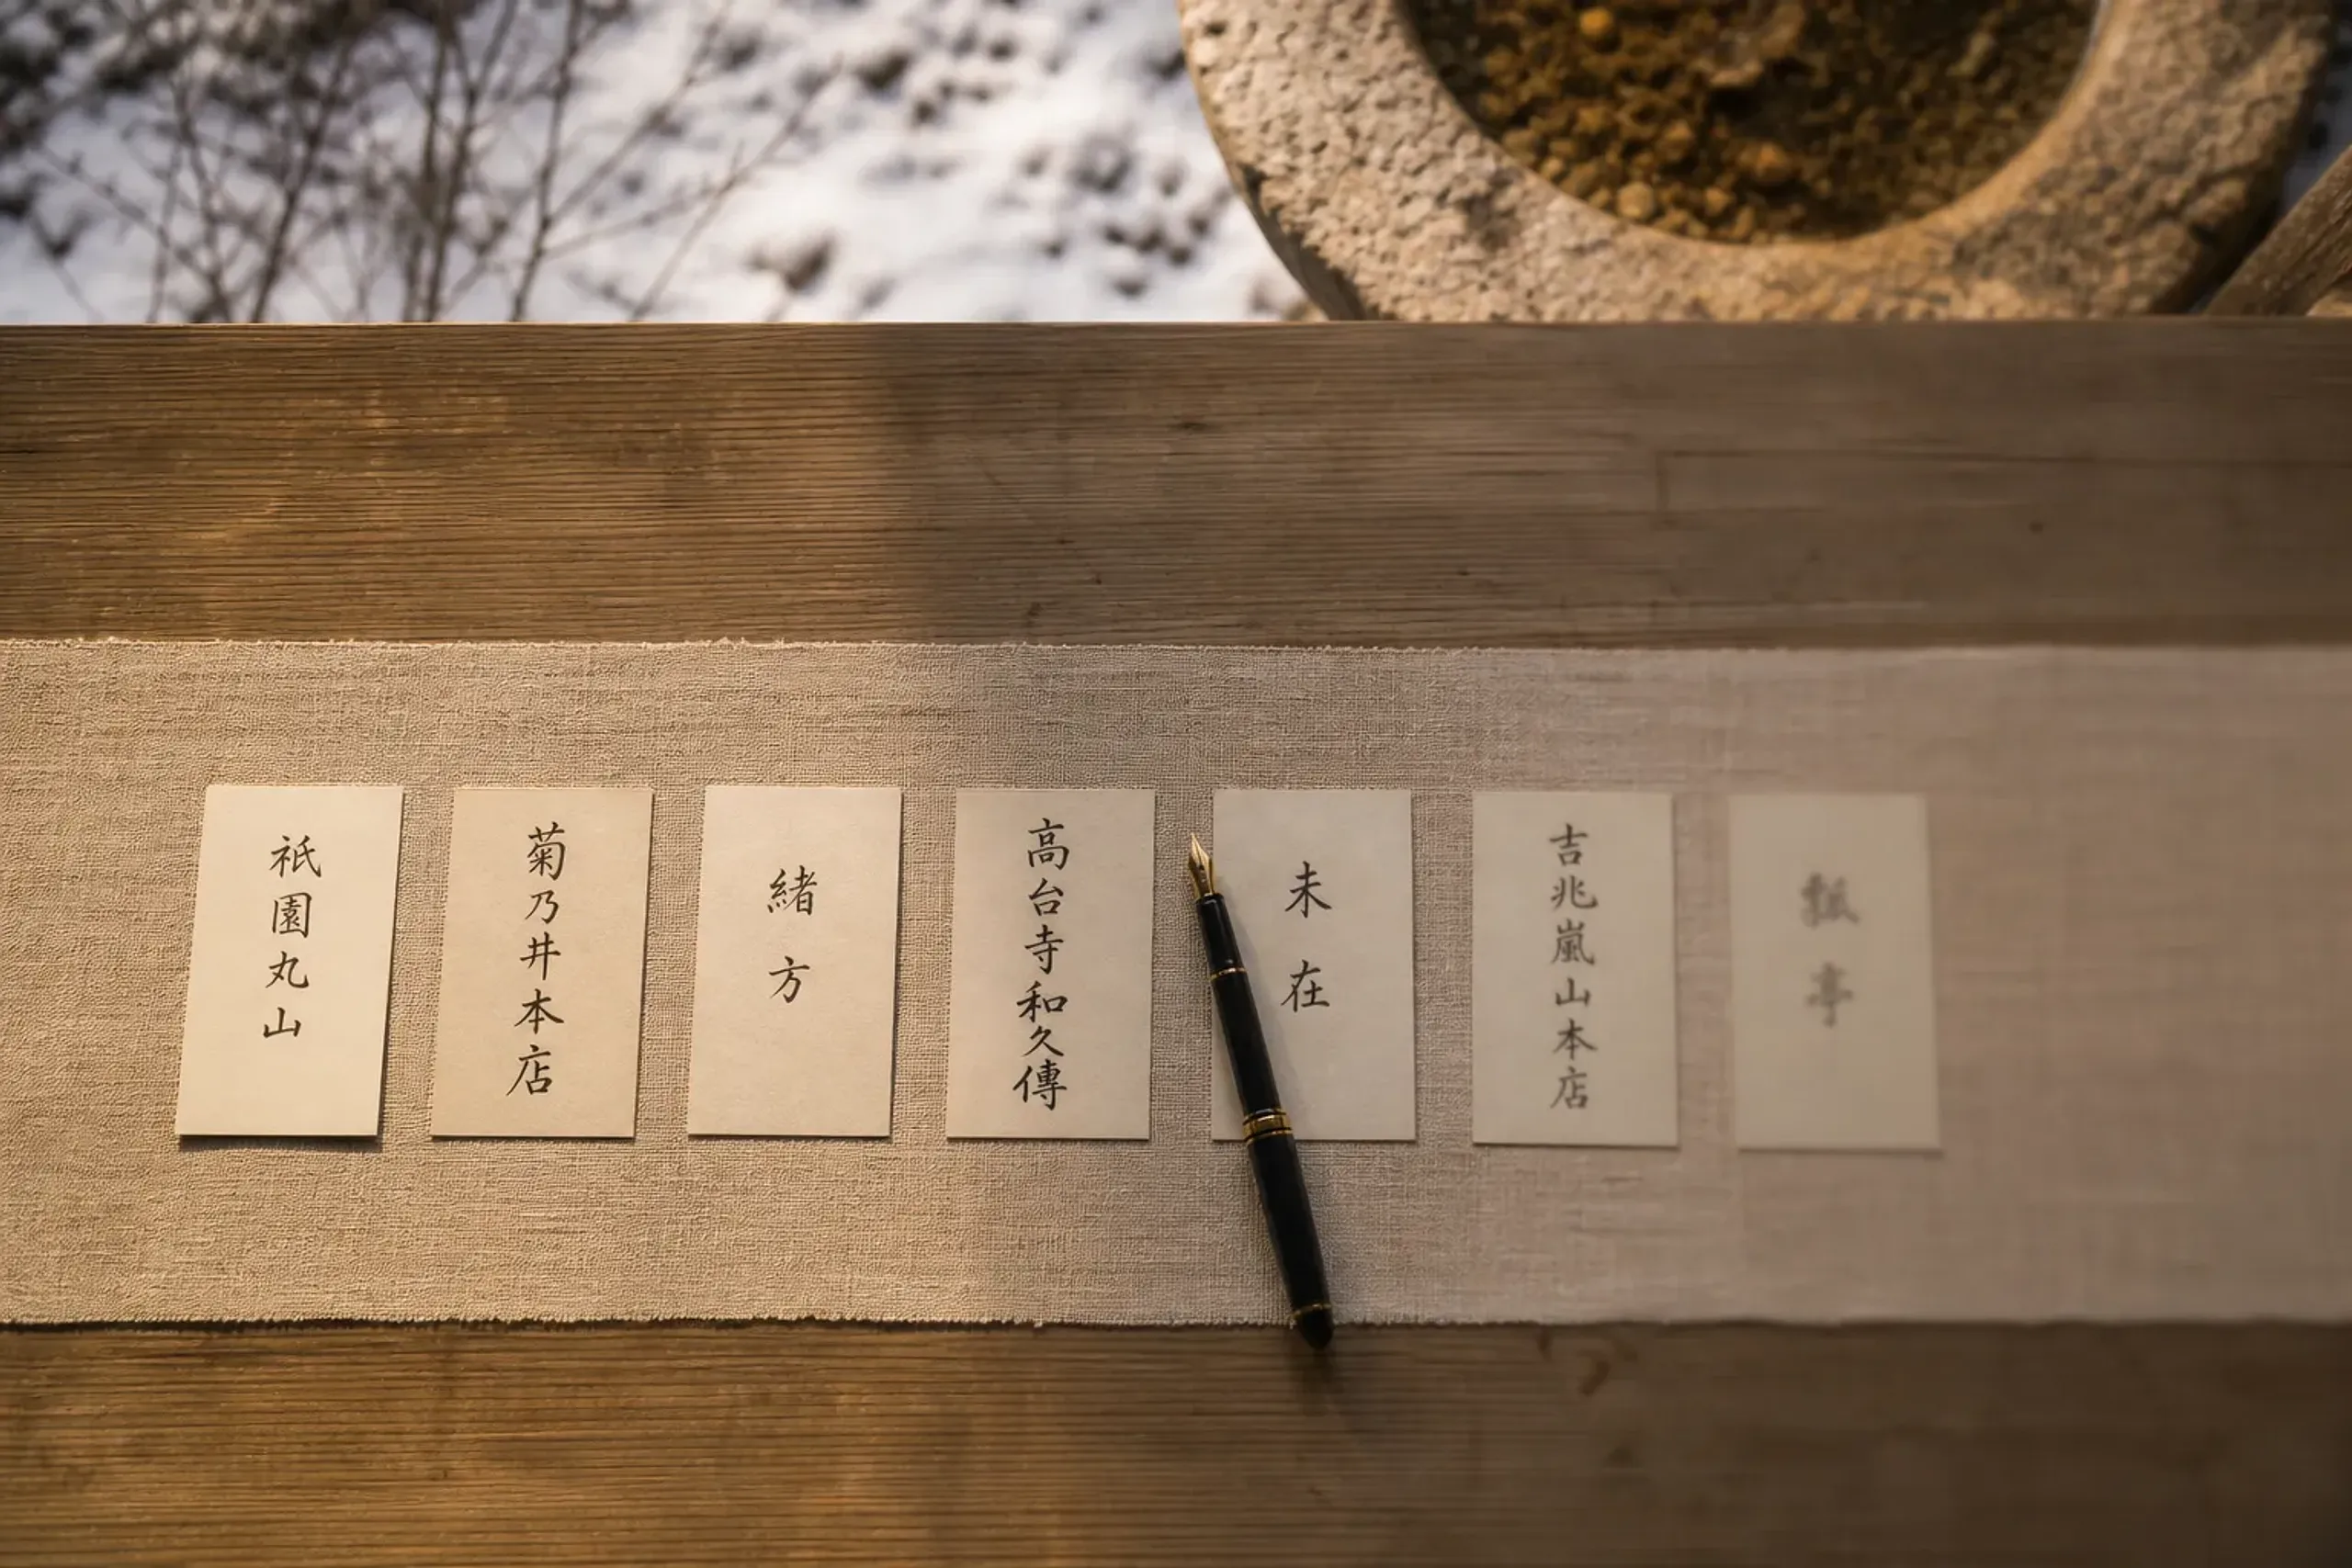 祇園丸山
菊乃井本店
緒方
高台寺和久傳
未在
吉兆嵐山本店
亭